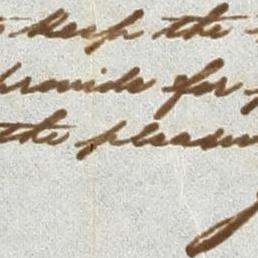 keep the
provide for
the pleasu